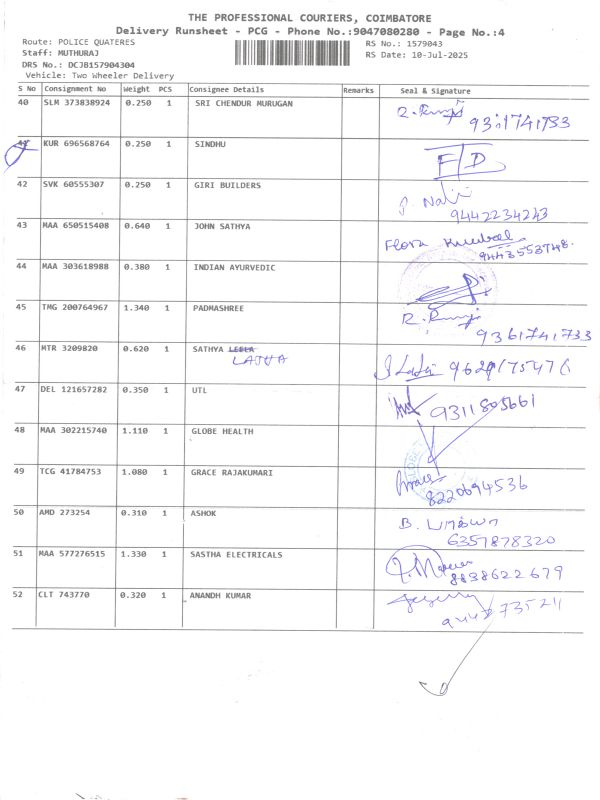 THE PROFESSIONAL COURIERS, COIMBATORE
Delivery Runsheet - PCG - Phone No.:9047080280 - Page No.:4
Route: POLICE QUATERES RS No.: 1579043
Staff: MUTHURAJ RS Date: 10-Jul-2025
DRS No.: DCJB157904304
Vehicle: Two Wheeler Delivery
S No Consignment No Weight PCS Consignee Details Remarks Seal & Signature
40 SLM 373838924 0.250 1 SRI CHENDUR MURUGAN
41 KUR 696568764 0.250 1 SINDHU F/D
42 SVK 60555307 0.250 1 GIRI BUILDERS
9442234243
43 MAA 650515408 0.640 1 JOHN SATHYA Flora
9443553748.
44 MAA 303618988 0.380 1 INDIAN AYURVEDIC
45 TMG 200764967 1.340 1 PADMASHREE
9361741733
46 MTR 3209820 0.620 1 SATHYA LEELA
47 DEL 121657282 0.350 1 UTL 9311805661
48 MAA 302215740 1.110 1 GLOBE HEALTH
49 TCG 41784753 1.080 1 GRACE RAJAKUMARI
8220694536
50 AMD 273254 0.310 1 ASHOK
6357878320
51 MAA 577276515 1.330 1 SASTHA ELECTRICALS
8838622679
52 CLT 743770 0.320 1 ANANDH KUMAR